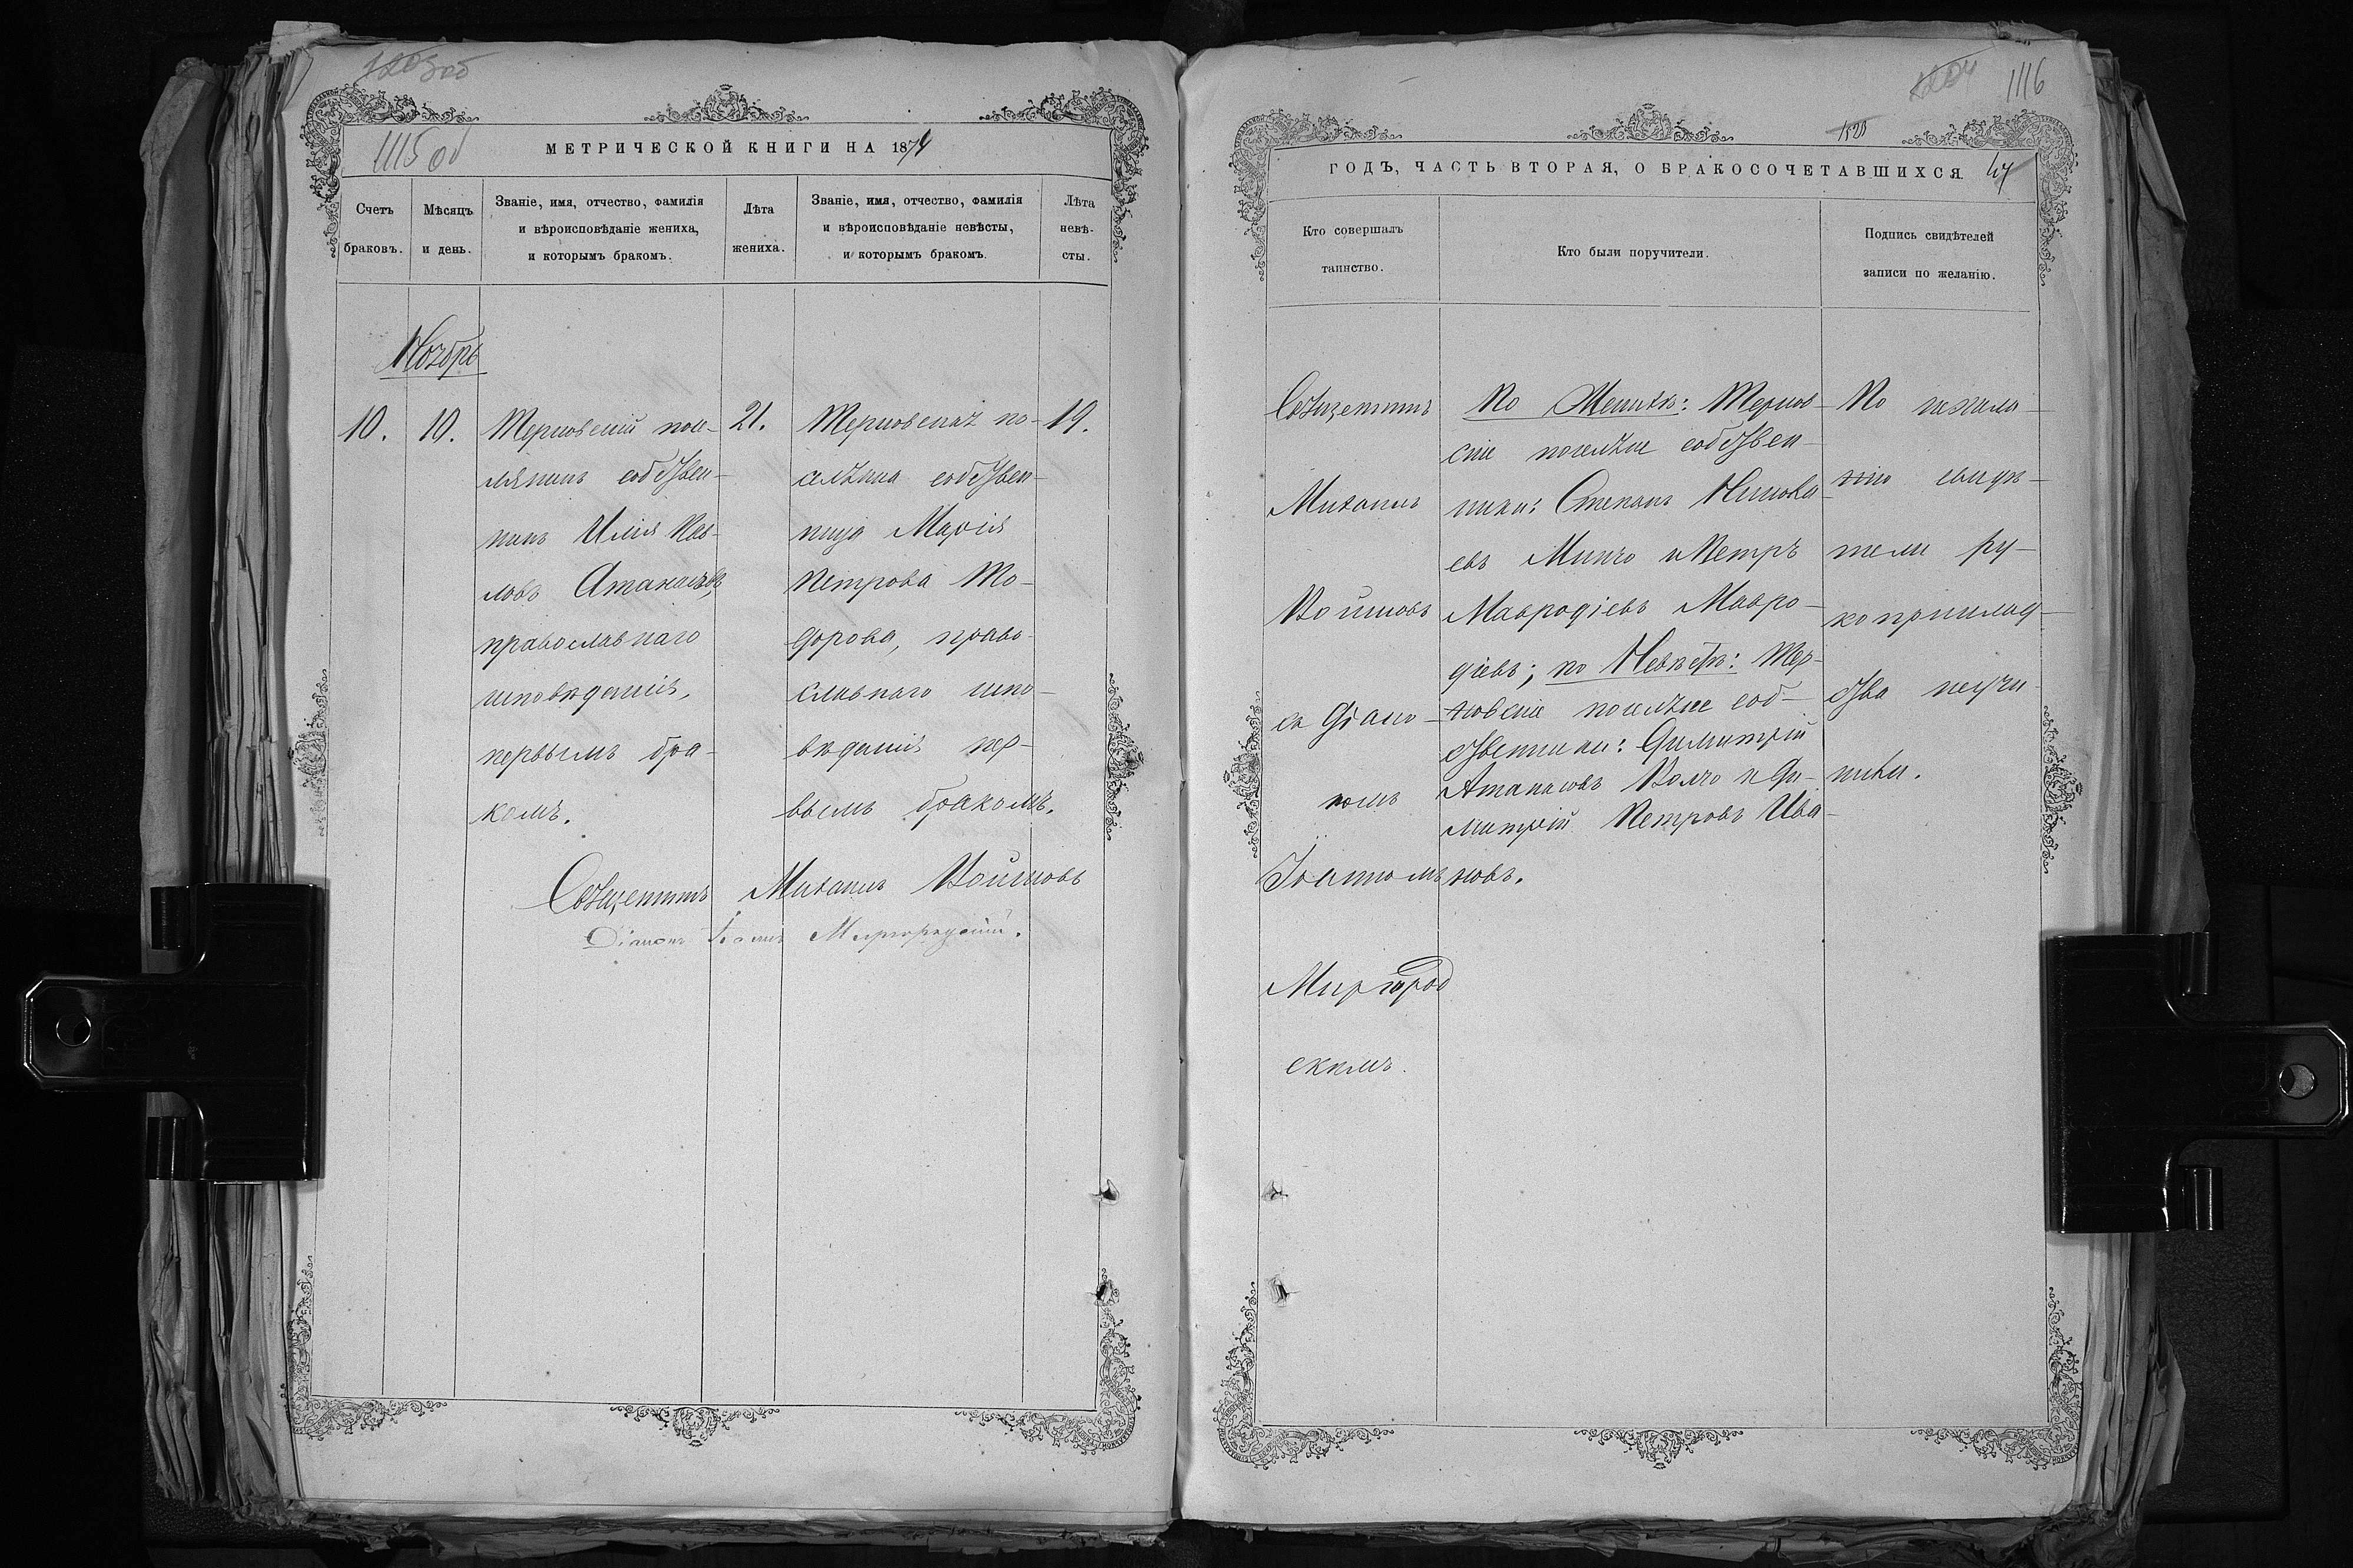 1115 об
МЕТРИЧЕСКОЙ КНИГИ НА 1874
Счетъ браковъ.
Мѣсяцъ и день.
Званіе, имя, отчество, фамилія
и вѣроисповѣданіе жениха,
и которымъ бракомъ.
Лѣта жениха.
Званіе, имя, отчество, фамилія
и вѣроисповѣданіе невѣсты,
и которымъ бракомъ.
Лѣта невѣ-
сты.
Ноябрь
10.
10.
Терновскій посе-
лянинъ собствен-
никъ Илія Пав-
ловъ Атанасовъ,
православнаго
исповѣданія,
первымъ бра-
комъ.
21.
Терновская по-
селянка собствен-
ница Марія
Петрова То-
дорова, право-
славнаго испо-
вѣданія пер-
вымъ бракомъ.
19.
Священникъ Михаилъ Войновъ
Діаконъ Іоаннъ Миргородскій.
1116
ГОДЪ, ЧАСТЬ ВТОРАЯ, О БРАКОСОЧЕТАВШИХСЯ.
Кто совершалъ
таинство.
Кто были поручители.
Подпись свидѣтелей
записи по желанію.
Священникъ
Михаилъ
Войновъ
съ Діако-
номъ
Іоанномъ
Миргород
скимъ.
По Женихѣ: Тернов-
скіе поселяне собствен-
ники: Степанъ Никола-
евъ Минчо и Петръ
Мавродіевъ Мавро-
діевъ; по Невѣстѣ: Тер-
новскіе поселяне соб-
ственники: Димитрій
Атанасовъ Волчо и Ди-
митрій Петровъ Ива-
новъ.
По жела-
нію свидѣ-
тели ру-
коприклад-
ства неучи-
нили.